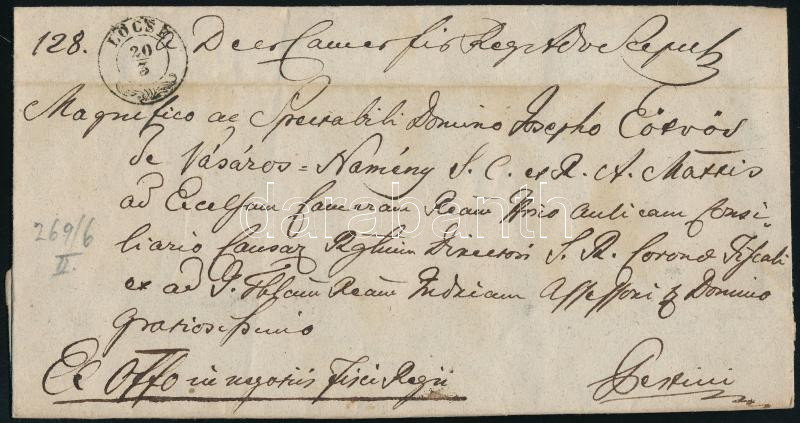 128. LŐCSE 20/3
Magnifico ac Spectabili Domino Josepho Eötvös
de Vásáros=Namény S. C. et R. A. Mattis
ad Excelsam Cameram Ream aulicam Consi
liario Causar Director S. R. Coronae Fiscali
et ad Ream Assessori Domino
gratiosissimo
Ex Offo in negotiis Fisci Regii Pestini
269/6
II.
darabanth